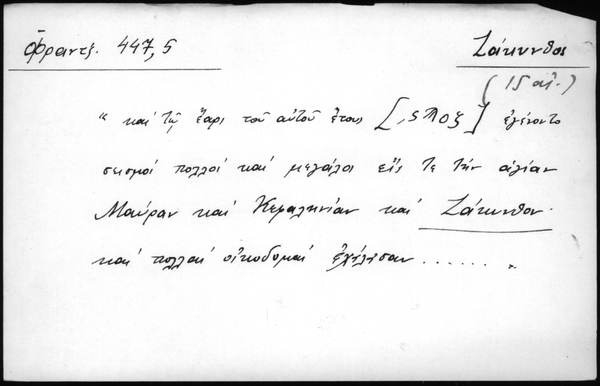 Φραντζ. 447,5
Ζάκυνθος
(15 αἰ.)
"καὶ τῷ ἔαρι τοῦ αὐτοῦ ἔτους [,ςϠοζ] ἐγένοντο
σεισμοὶ πολλοὶ καὶ μεγάλοι εἴς τε τὴν ἁγίαν
Μαύραν καὶ Κεφαληνίαν καὶ Ζάκυνθον
καὶ πολλαὶ οἰκοδομαὶ ......"